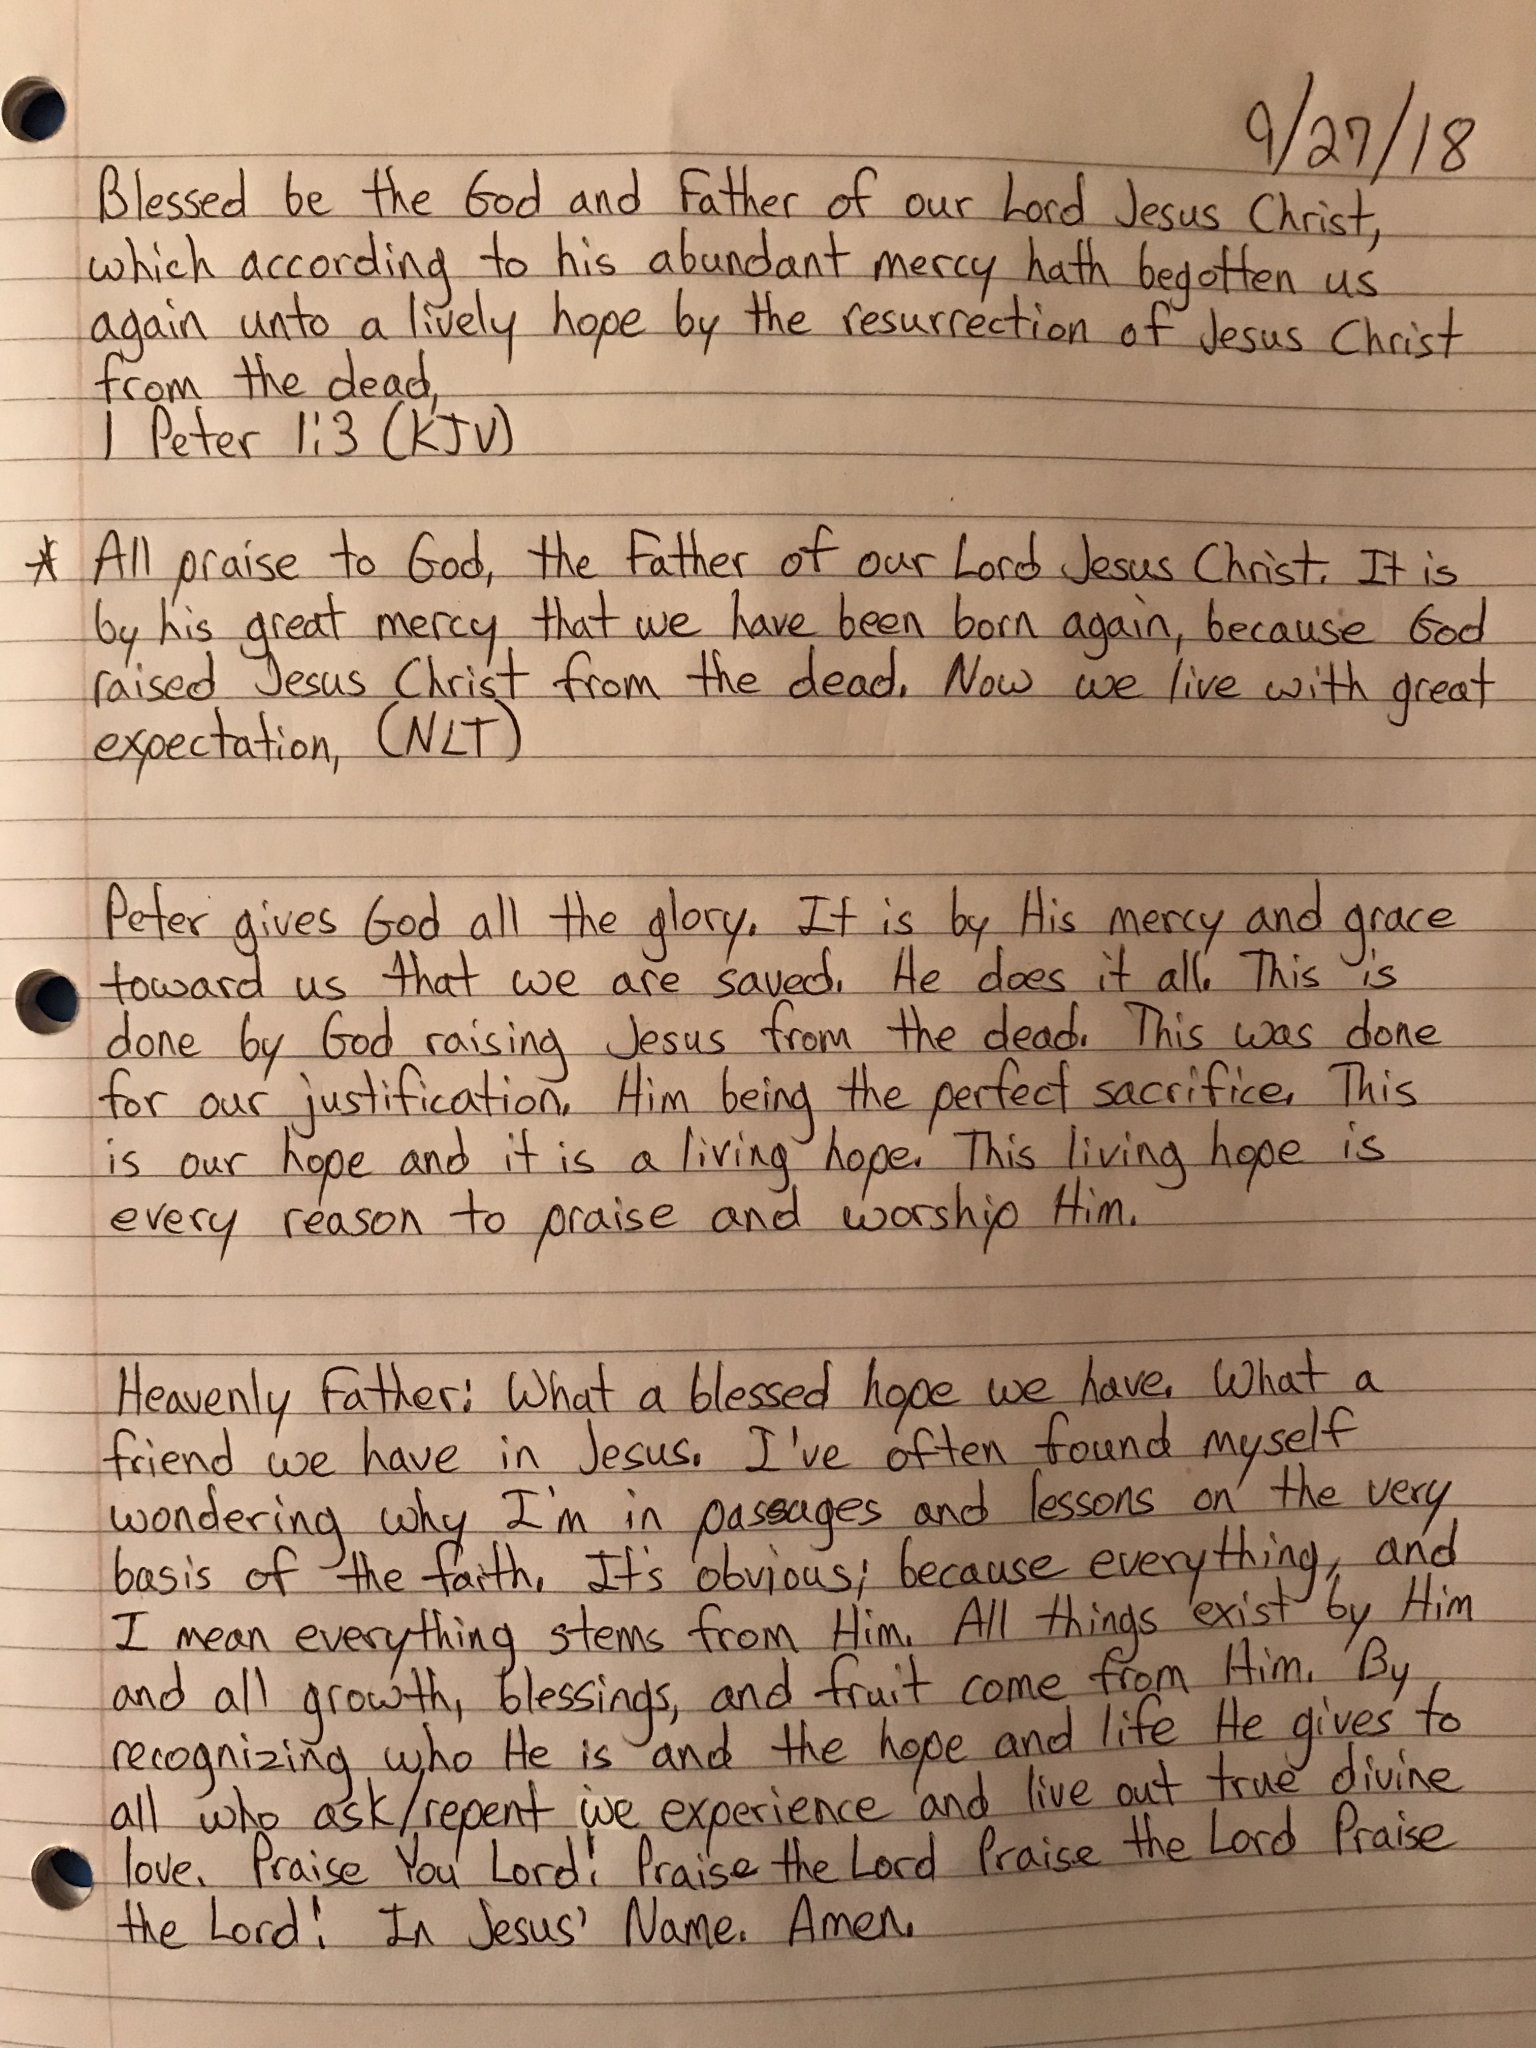 9/27/18
Blessed be the God and Father of our Lord Jesus Christ,
which according to his abundant mercy hath begotten us
again unto a lively hope by the resurrection of Jesus Christ
from the dead,
1 Peter 1:3 (KJV)
* All praise to God, the Father of our Lord Jesus Christ. It is
by his great mercy that we have been born again, because God
raised Jesus Christ from the dead. Now we live with great
expectation, (NLT)
Peter gives God all the glory. It is by His mercy and grace
toward us that we are saved. He does it all. This is
done by God raising Jesus from the dead. This was done
for our justification. Him being the perfect sacrifice. This
is our hope and it is a living hope. This living hope is
every reason to praise and worship Him.
Heavenly Father: What a blessed hope we have. What a
friend we have in Jesus. I've often found myself
wondering why I'm in passages and lessons on the very
basis of the faith. It's obvious; because everything, and
I mean everything stems from Him. All things exist by Him
and all growth, blessings, and fruit come from Him. By
recognizing who He is and the hope and life He gives to
all who ask/repent we experience and live out true divine
love. Praise You Lord! Praise the Lord Praise the Lord Praise
the Lord! In Jesus' Name. Amen.